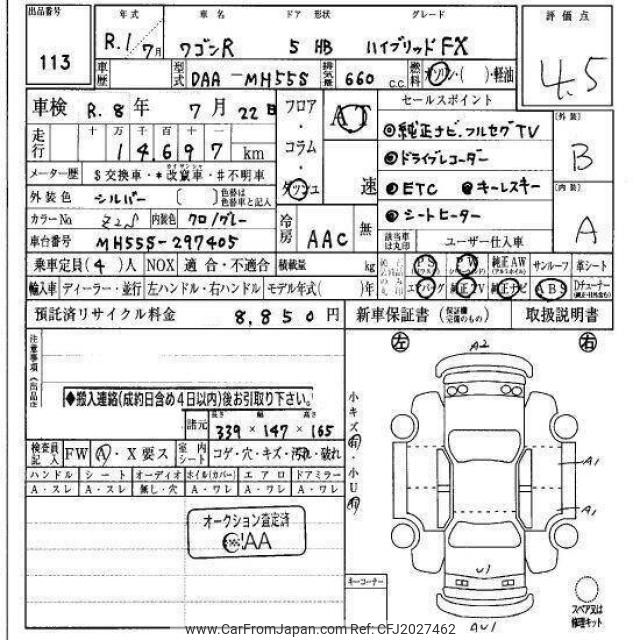 出品番号
113
年式
R.1/7月
車名
ワゴンR
ドア 形状
5 HB
グレード
ハイブリッドFX
評価点
4.5
車歴
型式
DAA-MH55S
排気量
660 C.C.
燃料
ガソリン・( )・軽油
車検 R.8年 7月22日
フロア・コラム・ダッシュ
AT
速
セールスポイント
◎純正ナビ.フルセグTV
◎ドライブレコーダー
◎ETC ◎キーレスキー
◎シートヒーター
[外装]
B
[内装]
A
走行
十 万 千 百 十
14697 km
メーター歴 $交換車・*改竄車・#不明車
外装色 シルバー
色替は色替車と記入
カラーNo Z2S 内装色 クロ/グレー
車台番号 MH55S-297405
冷房 AAC 無
該当車は丸印
ユーザー仕入車
乗車定員(4)人 NOX 適合・不適合 積載量 kg
PS PW 純正AW サンルーフ 革シート
輸入車 ディーラー・並行 左ハンドル・右ハンドル モデル年式( )年
エアバッグ 純正TV 純正ナビ ABS Dチューナー
預託済リサイクル料金 8,850円
新車保証書 (保証継完備のもの) 取扱説明書
注意事項
◆搬入連絡(成約日含め4日以内)後お引取り下さい。
諸元
長さ 幅 高さ
339×147×165
検査員記入 FW A・X要ス 室内シート コゲ・穴・キズ・汚れ・破れ
ハンドル シート オーディオ ホイル(カバー) エアロ ドアミラー
A・スレ A・スレ 無し・穴 A・ワレ A・ワレ A・ワレ
オークション査定済
JAA
小キズ有・小U有
左
右
A2
A1
A1
U1
AU1
キーコーナー
スペア又は修理キット
www.CarFromJapan.com Ref: CFJ2027462